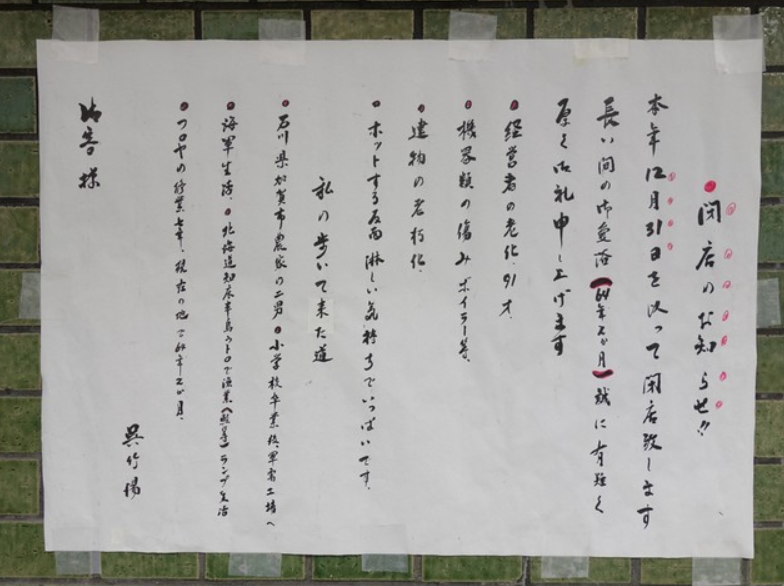 閉店のお知らせ!!
本年12月31日を以って閉店致します
長い間の御愛浴(64年2か月)誠に有難く
厚く御礼申し上げます
経営者の老化、91才、
機器類の傷みボイラー等、
建物の老朽化、
ホットする反面淋しい気持ちでいっぱいです。
私の歩いて来た道
石川県加賀市農家の二男 小学校卒業後、軍需工場へ
海軍生活、北海道知床半島ウトロで漁業() ランプ生活
フロヤの修業七年、現在の地で64年2か月、
呉竹湯
お客様